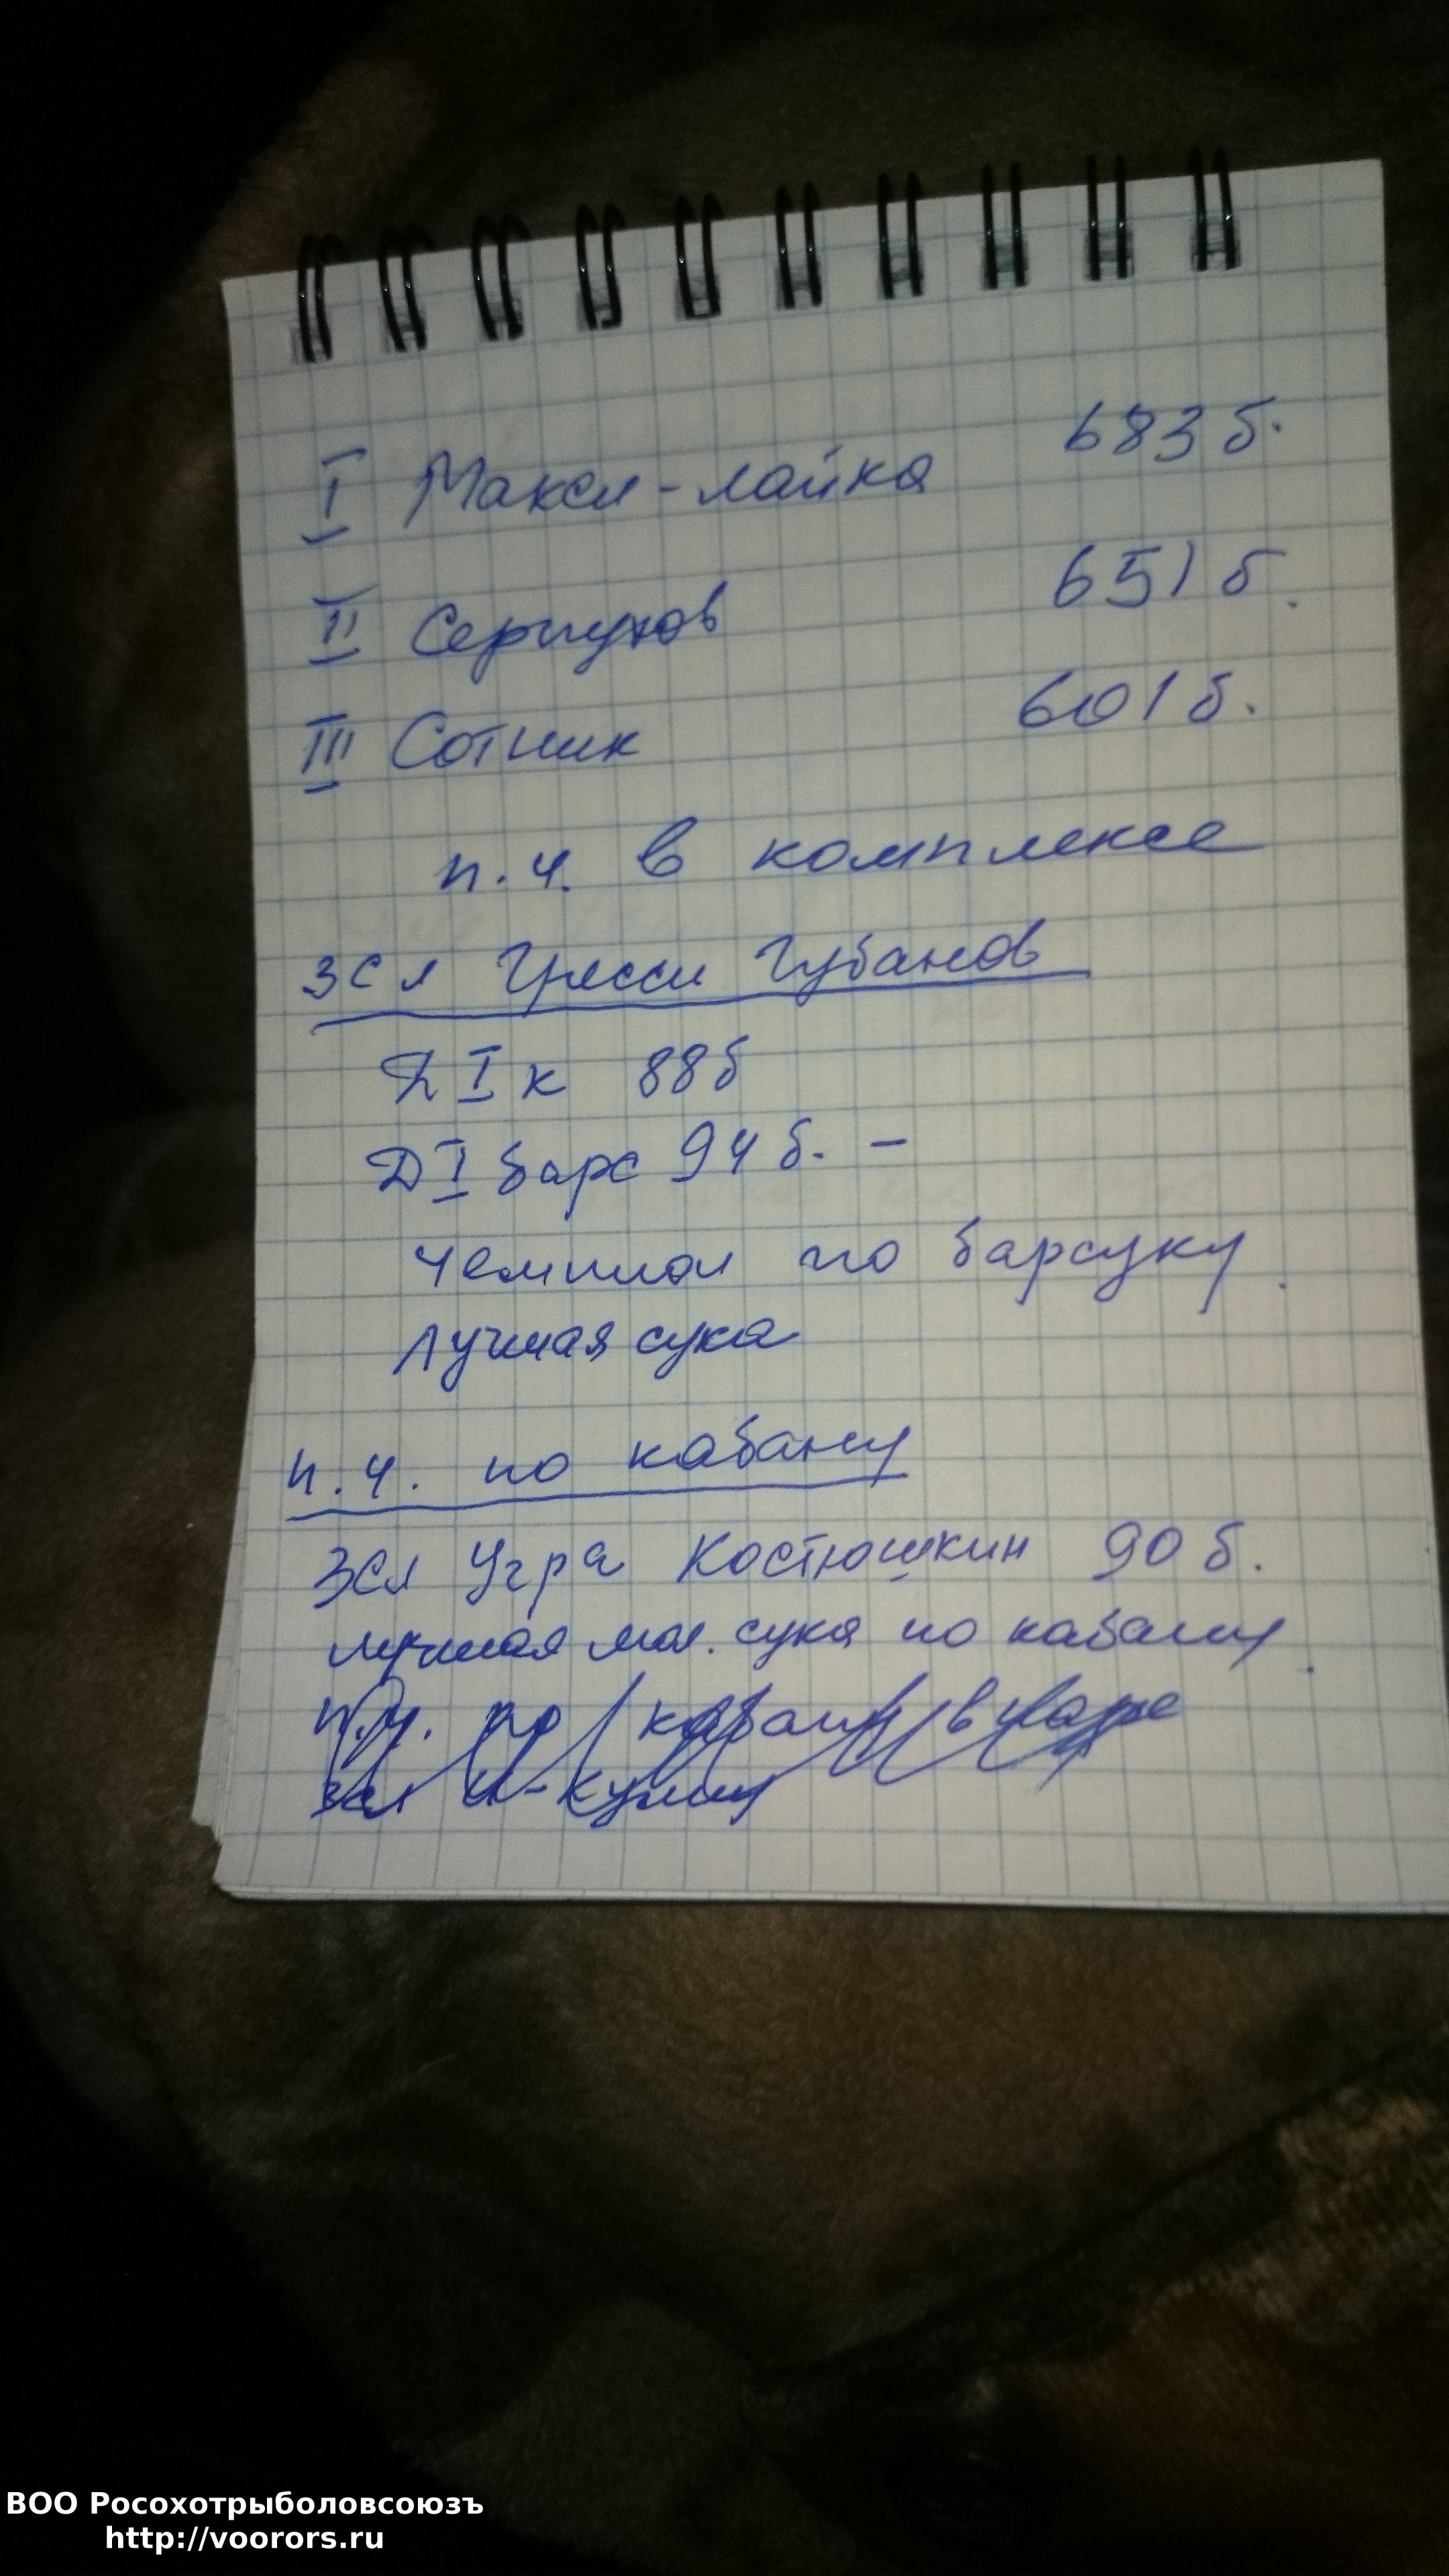 I Макси-лайка 683 б.
II Серпухов 651 б.
III Сотник 601 б.
п.ч. в комплексе
ЗСЛ Гресси Губанов
Д I к 88 б
Д I барс 94 б. –
чемпион по барсуку.
Лучшая сука
п.ч. по кабану
ЗСЛ Угра Костюшкин 90 б.
лучшая мол. сука по кабану.
п.ч. по кабану в паре
ЗСЛ
ВОО Росохотрыболовсоюзъ
http://voorors.ru